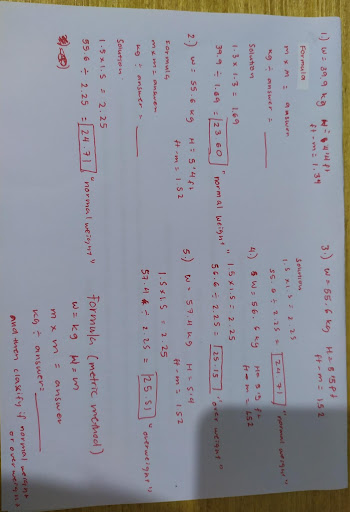 1.) W = 39.9 kg H = 4'4 ft
ft - m = 1.34
Formula
m x m = answer
kg ÷ answer = ______
Solution
1.3 x 1.3 = 1.69
39.9 ÷ 1.69 = 23.60 "normal weight"
2.) W = 55.6 kg H = 5'4 ft
ft - m = 1.52
Formula
m x m = answer
kg ÷ answer = ______
Solution.
1.5 x 1.5 = 2.25
55.6 ÷ 2.25 = 24.71 "normal weight"
3.) W = 55.6 kg H = 5'
ft - m = 1.52
Solution
1.5 x 1.5 = 2.25
55.6 ÷ 2.25 = 24.71 "normal weight"
4.) W = 56.6 kg H = 5'
ft - m = 1.52
1.5 x 1.5 = 2.25
56.6 ÷ 2.25 = 25.15 "over weight"
5.) W = 57.4 kg H = 5.4
ft - m = 1.52
1.5 x 1.5 = 2.25
57.4 ÷ 2.25 = 25.51 "overweight"
formula (metric method)
W = kg H = m
m x m = answer
kg ÷ answer = ______
and then classify if normal weight
or over weight